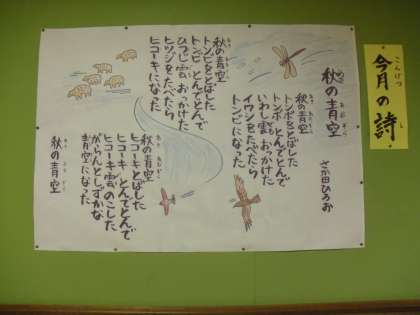 今月の詩
こんげつ し
秋の青空
さか田ひろお
秋の青空
トンボをとばした
トンボ とんでとんで
いわし雲 おっかけた
イワシをたべたら
トンビになった
秋の青空
トンビをとばした
トンビ とんでとんで
ひつじ雲 おっかけた
ヒツジをたべたら
ヒコーキになった
秋の青空
ヒコーキとばした
ヒコーキ とんでとんで
ヒコーキ雲のこした
がらんとしずかな
青空になった
秋の青空